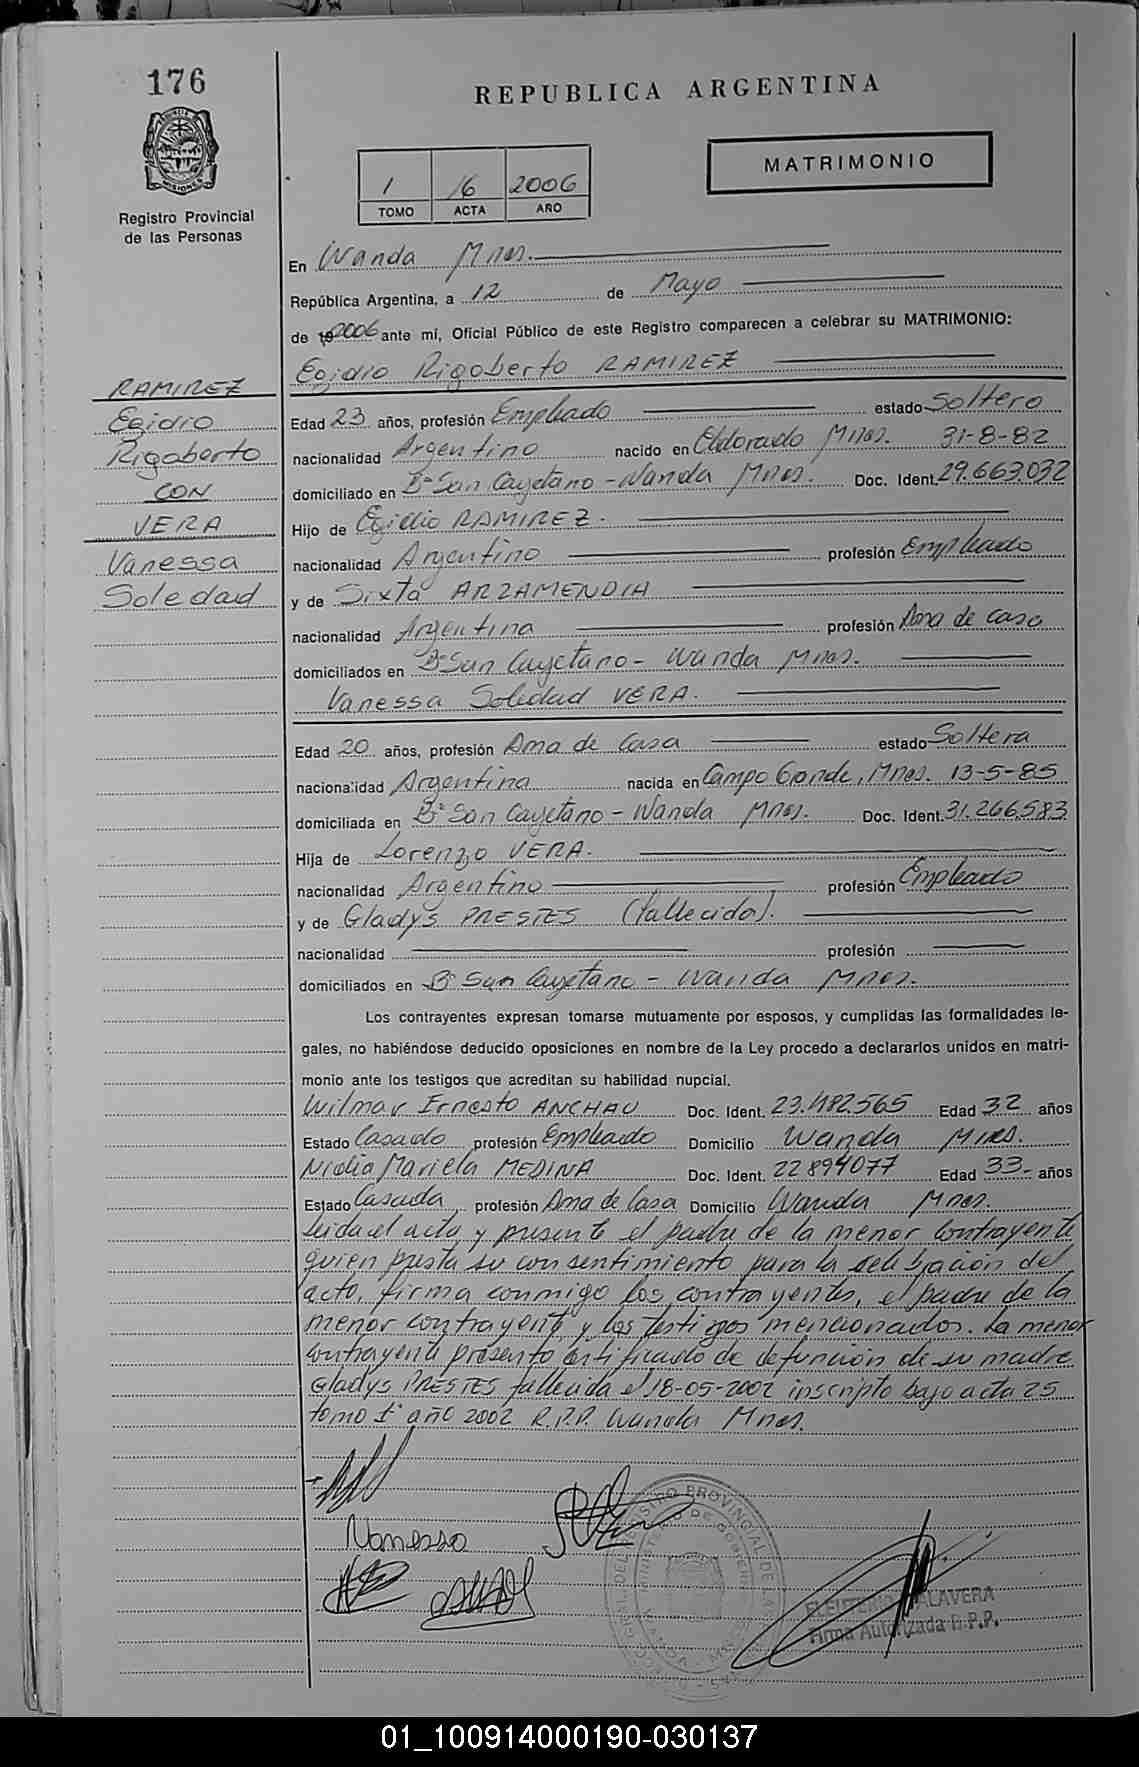 176
REPUBLICA ARGENTINA
MISIONES
Registro Provincial
de las Personas
1 16 2006
TOMO ACTA AÑO
MATRIMONIO
En Wanda Mnes.
República Argentina, a 12 de Mayo
de 2006 ante mí, Oficial Público de este Registro comparecen a celebrar su MATRIMONIO:
Egidio Rigoberto RAMIREZ
RAMIREZ
Egidio
Rigoberto
CON
VERA
Vanessa
Soledad
Edad 23 años, profesión Empleado estado Soltero
nacionalidad Argentino nacido en Eldorado Mnes. 31-8-82
domiciliado en Bº San Cayetano - Wanda Mnes. Doc. Ident. 29.663.032
Hijo de Egidio RAMIREZ.
nacionalidad Argentino profesión Empleado
y de Sixta ARZAMENDIA
nacionalidad Argentina profesión Ama de casa
domiciliados en Bº San Cayetano - Wanda Mnes.
Vanessa Soledad VERA.
Edad 20 años, profesión Ama de Casa estado Soltera
nacionalidad Argentina nacida en Campo Grande, Mnes. 13-5-85
domiciliada en Bº San Cayetano - Wanda Mnes. Doc. Ident. 31.266.583
Hija de Lorenzo VERA.
nacionalidad Argentino profesión Empleado
y de Gladys PRESTES (fallecida).
nacionalidad profesión
domiciliados en Bº San Cayetano - Wanda Mnes.
Los contrayentes expresan tomarse mutuamente por esposos, y cumplidas las formalidades le-
gales, no habiéndose deducido oposiciones en nombre de la Ley procedo a declararlos unidos en matri-
monio ante los testigos que acreditan su habilidad nupcial.
Wilmar Ernesto ANCHAU Doc. Ident. 23.482.565 Edad 32 años
Estado Casado profesión Empleado Domicilio Wanda Mnes.
Nidia Mariela MEDINA Doc. Ident. 22894077 Edad 33- años
Estado Casada profesión Ama de Casa Domicilio Wanda Mnes.
Leida el acta y presente el padre de la menor contrayente
quien presta su consentimiento para la celebración del
acto, firma conmigo los contrayentes, el padre de la
menor contrayente y los testigos mencionados. La menor
contrayente presento certificado de defunción de su madre
Gladys PRESTES fallecida el 18-05-2002 inscripto bajo acta 25
tomo 1º año 2002 R.P.P. Wanda Mnes.
Vanessa
ELEUTERIO TALAVERA
Firma Autorizada R.P.P.
01_100914000190-030137